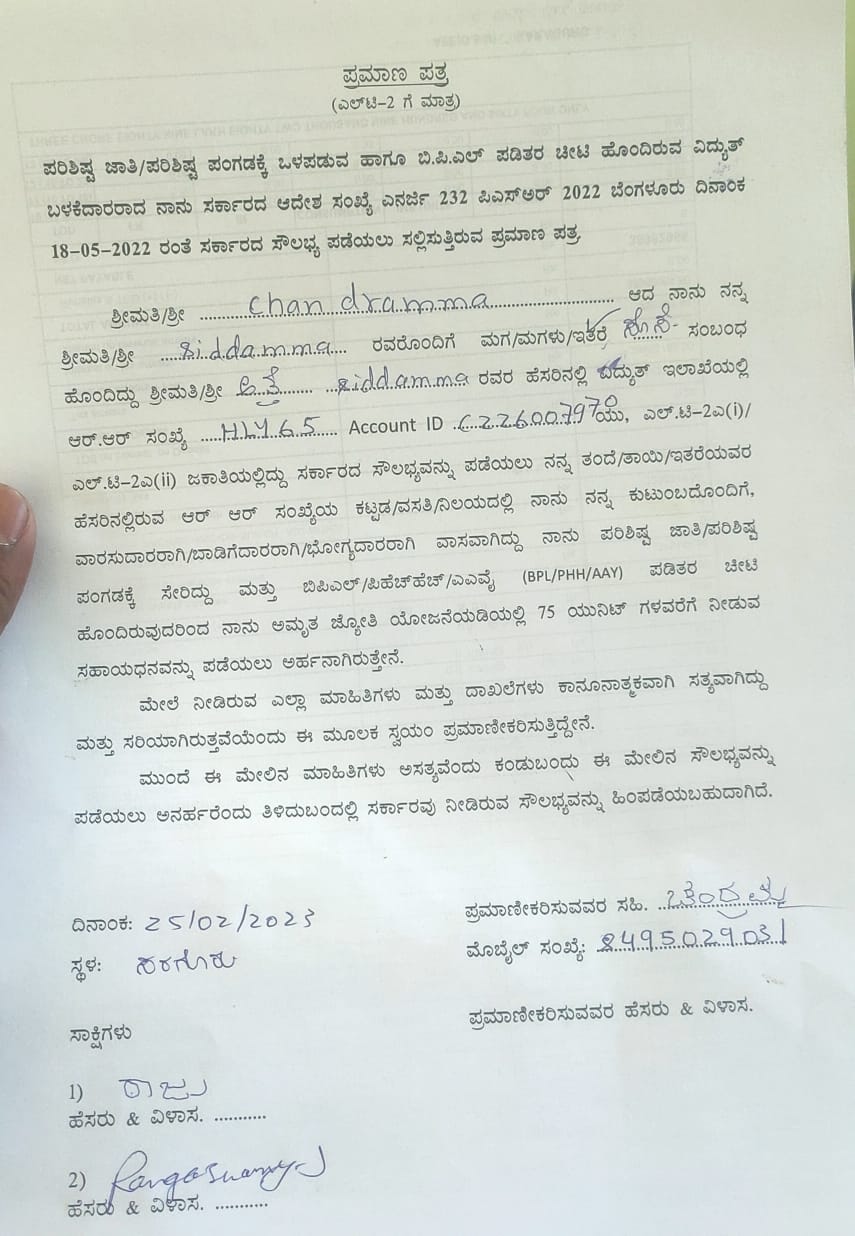 ಪ್ರಮಾಣ ಪತ್ರ
(ಎಲ್‌ಟಿ-2 ಗೆ ಮಾತ್ರ)
ಪರಿಶಿಷ್ಟ ಜಾತಿ/ಪರಿಶಿಷ್ಟ ಪಂಗಡಕ್ಕೆ ಒಳಪಡುವ ಹಾಗೂ ಬಿ.ಪಿ.ಎಲ್ ಪಡಿತರ ಚೀಟಿ ಹೊಂದಿರುವ ವಿದ್ಯುತ್
ಬಳಕೆದಾರರಾದ ನಾನು ಸರ್ಕಾರದ ಆದೇಶ ಸಂಖ್ಯೆ ಎನರ್ಜಿ 232 ಪಿಎಸ್‌ಅರ್ 2022 ಬೆಂಗಳೂರು ದಿನಾಂಕ
18-05-2022 ರಂತೆ ಸರ್ಕಾರದ ಸೌಲಭ್ಯ ಪಡೆಯಲು ಸಲ್ಲಿಸುತ್ತಿರುವ ಪ್ರಮಾಣ ಪತ್ರ.
ಶ್ರೀಮತಿ/ಶ್ರೀ Chandramma ಆದ ನಾನು ನನ್ನ
ಶ್ರೀಮತಿ/ಶ್ರೀ siddamma ರವರೊಂದಿಗೆ ಮಗ/ಮಗಳು/ಇತರೆ ಸೊಸೆ ಸಂಬಂಧ
ಹೊಂದಿದ್ದು ಶ್ರೀಮತಿ/ಶ್ರೀ ಅತ್ತೆ siddamma ರವರ ಹೆಸರಿನಲ್ಲಿ ವಿದ್ಯುತ್ ಇಲಾಖೆಯಲ್ಲಿ
ಆರ್.ಆರ್ ಸಂಖ್ಯೆ HLY65 Account ID C226007970 ಯು, ಎಲ್.ಟಿ-2ಎ(i)/
ಎಲ್.ಟಿ-2ಎ(ii) ಜಕಾತಿಯಲ್ಲಿದ್ದು ಸರ್ಕಾರದ ಸೌಲಭ್ಯವನ್ನು ಪಡೆಯಲು ನನ್ನ ತಂದೆ/ತಾಯಿ/ಇತರೆಯವರ
ಹೆಸರಿನಲ್ಲಿರುವ ಆರ್ ಆರ್ ಸಂಖ್ಯೆಯ ಕಟ್ಟಡ/ವಸತಿ/ನಿಲಯದಲ್ಲಿ ನಾನು ನನ್ನ ಕುಟುಂಬದೊಂದಿಗೆ,
ವಾರಸುದಾರರಾಗಿ/ಬಾಡಿಗೆದಾರರಾಗಿ/ಭೋಗ್ಯದಾರರಾಗಿ ವಾಸವಾಗಿದ್ದು ನಾನು ಪರಿಶಿಷ್ಟ ಜಾತಿ/ಪರಿಶಿಷ್ಟ
ಪಂಗಡಕ್ಕೆ ಸೇರಿದ್ದು ಮತ್ತು ಬಿಪಿಎಲ್/ಪಿಹೆಚ್‌ಹೆಚ್/ಎಎವೈ (BPL/PHH/AAY) ಪಡಿತರ ಚೀಟಿ
ಹೊಂದಿರುವುದರಿಂದ ನಾನು ಅಮೃತ ಜ್ಯೋತಿ ಯೋಜನೆಯಡಿಯಲ್ಲಿ 75 ಯುನಿಟ್ ಗಳವರೆಗೆ ನೀಡುವ
ಸಹಾಯಧನವನ್ನು ಪಡೆಯಲು ಅರ್ಹನಾಗಿರುತ್ತೇನೆ.
ಮೇಲೆ ನೀಡಿರುವ ಎಲ್ಲಾ ಮಾಹಿತಿಗಳು ಮತ್ತು ದಾಖಲೆಗಳು ಕಾನೂನಾತ್ಮಕವಾಗಿ ಸತ್ಯವಾಗಿದ್ದು
ಮತ್ತು ಸರಿಯಾಗಿರುತ್ತವೆಯೆಂದು ಈ ಮೂಲಕ ಸ್ವಯಂ ಪ್ರಮಾಣೀಕರಿಸುತ್ತಿದ್ದೇನೆ.
ಮುಂದೆ ಈ ಮೇಲಿನ ಮಾಹಿತಿಗಳು ಅಸತ್ಯವೆಂದು ಕಂಡುಬಂದ್ದು ಈ ಮೇಲಿನ ಸೌಲಭ್ಯವನ್ನು
ಪಡೆಯಲು ಅನರ್ಹರೆಂದು ತಿಳಿದುಬಂದಲ್ಲಿ ಸರ್ಕಾರವು ನೀಡಿರುವ ಸೌಲಭ್ಯವನ್ನು ಹಿಂಪಡೆಯಬಹುದಾಗಿದೆ.
ದಿನಾಂಕ: 25/02/2023
ಸ್ಥಳ: ಸರಗೂರು
ಪ್ರಮಾಣೀಕರಿಸುವವರ ಸಹಿ. ಚಂದ್ರಮ್ಮ
ಮೊಬೈಲ್ ಸಂಖ್ಯೆ: 8495029031
ಪ್ರಮಾಣೀಕರಿಸುವವರ ಹೆಸರು & ವಿಳಾಸ.
ಸಾಕ್ಷಿಗಳು
1) ರಾಜು
ಹೆಸರು & ವಿಳಾಸ. ...........
2) Rangaswamy
ಹೆಸರು & ವಿಳಾಸ. ...........